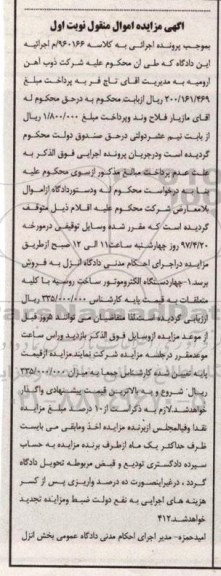 آگهی مزایده اموال منقول نوبت اول
بموجب پرونده اجرائی به کلاسه ۹۶۰۱۶۶/م اجرائیه
این دادگاه که طی آن محکوم علیه شرکت ذوب آهن
ارومیه به مدیریت آقای تاج فر به پرداخت مبلغ
۲۰۰/۱۶۱/۴۶۹ ریال ازبابت محکوم به درحق محکوم له
آقای مازیار فلاح وند وپرداخت مبلغ ۱/۸۰۰/۰۰۰ ریال
از بابت نیم عشردولتی درحق صندوق دولت محکوم
گردیده است ودرجریان پرونده اجرایی فوق الذکر به
علت عدم پرداخت مبالغ مذکور ازسوی محکوم علیه
بنا به درخواست محکوم له ودستوردادگاه ازاموال
بلامعارض شرکت محکوم علیه اقلام ذیل متوقف
گردیده است که مقرر شده وسایل توقیفی درمورخه
۹۷/۳/۲۰ روز چهارشنبه ساعت ۱۱ الی ۱۲ صبح ازطریق
مزایده دراجرای احکام مدنی دادگاه انزل به فروش
برسد۱-چهاردستگاه الکتروموتور ساخت روسیه با کلیه
متعلقات به قیمت پایه کارشناس ۳۳۵/۰۰۰/۰۰۰ ریال
ارزیابی گردیده است لذا متقاضیان می توانند ۵روز قبل
از موعد مزایده ازوسایل فوق الذکر بازدید وراس ساعت
موعدمقرر درجلسه مزایده شرکت نمایندمزایده ازقیمت
پایه تعیین شده کارشناس جمعا به میزان ۳۳۵/۰۰۰/۰۰۰
ریال شروع و به بالاترین قیمت پیشنهادی واگذار
خواهدشد.لازم به ذکراست از۱۰ درصد مبلغ مزایده
نقدا وفی المجلس ازبرنده مزایده اخذ ومابقی می بایست
ظرف حداکثر یک ماه ازطرف برنده مزایده به حساب
سپرده دادگستری تودیع و قبض مربوطه تحویل دادگاه
گردد ، درغیراینصورت ده درصد واریزی پس از کسر
هزینه های اجرایی به نفع دولت ضبط ومزایده تجدید
خواهدشد.۴۱۲
امیدحمزه- مدیر اجرای احکام مدنی دادگاه عمومی بخش انزل